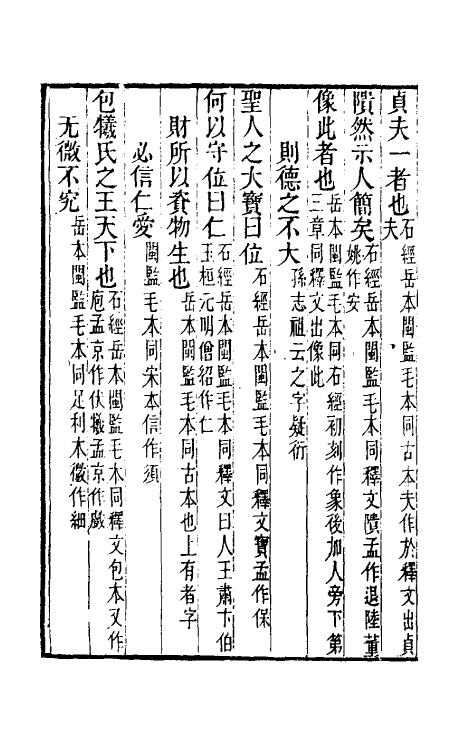 貞夫一者也石經岳本閩監毛本同古本夫作於釋文出貞夫
隤然示人簡矣石經岳本閩監毛本同釋文隤孟作退陸董姚作妥
像此者也岳本閩監毛本同石經初刻作象後加人旁下第三章同釋文出像此
則德之不大孫志祖云之字疑衍
聖人之大寶曰位石經岳本閩監毛本同釋文寶孟作保
何以守位曰仁石經岳本閩監毛本同釋文曰人王肅卞伯玉桓元明僧紹作仁
財所以資物生也岳本閩監毛本同古本也上有者字
必信仁愛閩監毛本同宋本信作須
包犧氏之王天下也石經岳本閩監毛本同釋文包本又作庖孟京作伏犧孟京作戲
无微不究岳本閩監毛本同足利本微作細